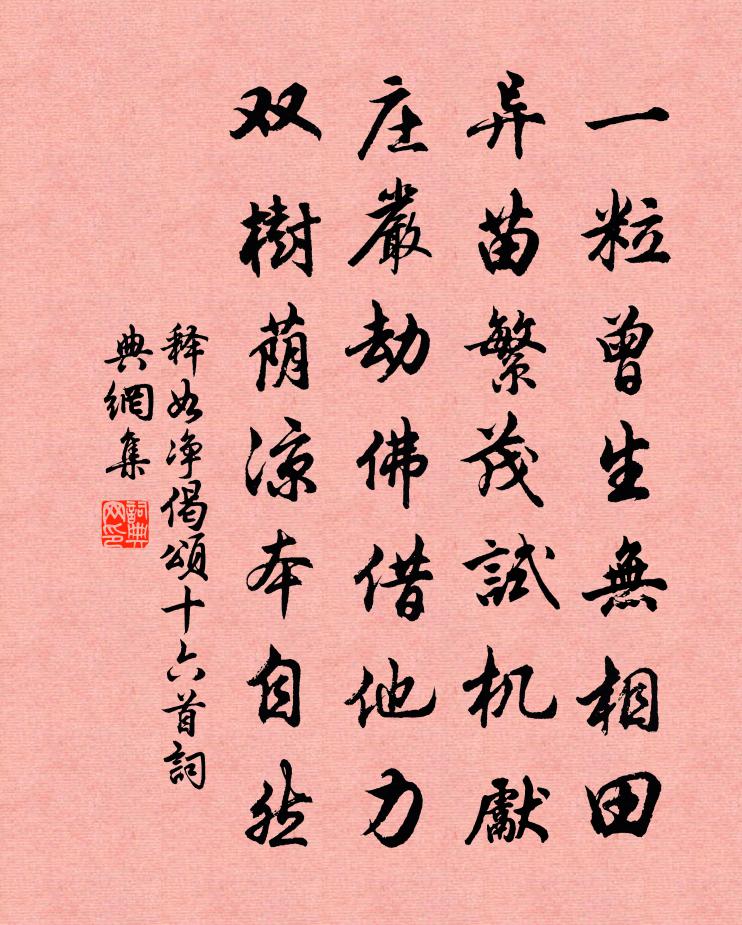 一粒曾生無相田
异苗繁茂試机獻
庄嚴劫佛借他力
双樹荫凉本自然
释如净偈頌十六首詞
典網集
詞典
网印